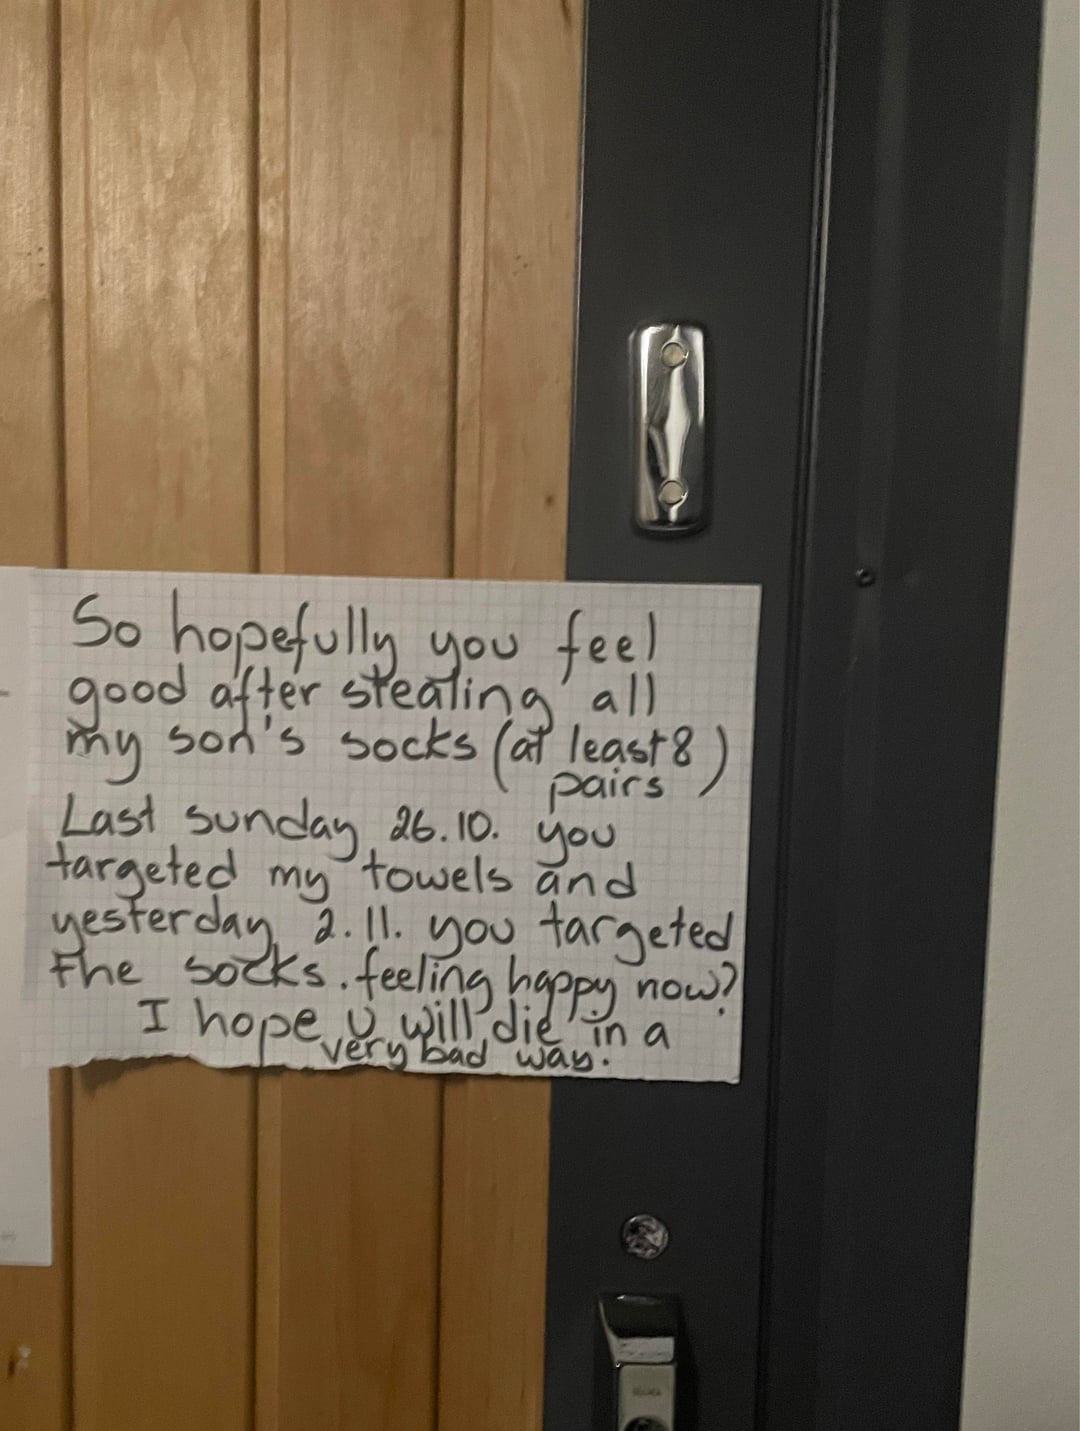 So hopefully you feel
good after stealing all
my son's socks (at least 8
pairs)
Last sunday 26.10. you
targeted my towels and
yesterday 2.11. you targeted
the socks. feeling happy now?
I hope u will die in a
very bad way.